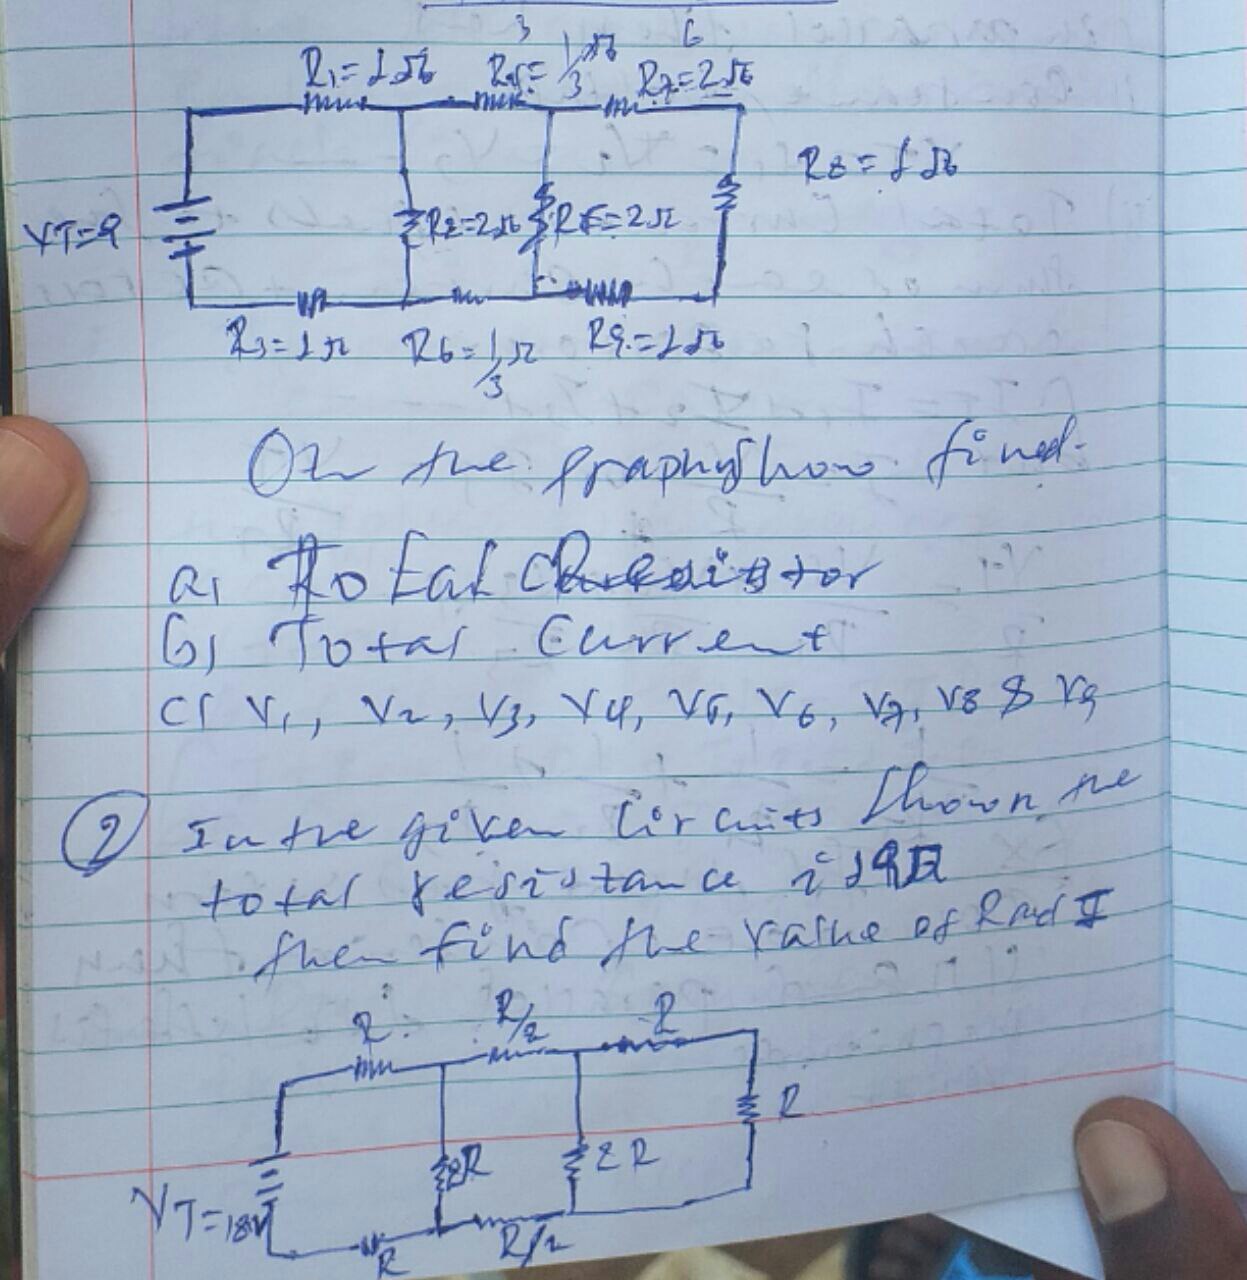 3 6
R1=1Ω R4=1/3Ω R7=2Ω
R8=1Ω
VT=9 R2=2Ω R5=2Ω
R3=1Ω R6=1/3Ω R9=1Ω
On the graphy show fined.
a) Total
b) Total Current
c) V1, V2, V3, V4, V5, V6, V7, V8 & V9
2 In the given Circuits Shown the
total resistance is 9Ω
then find the value of R and I
R R/2 R
R
2R 2R
VT=18V
R R/2